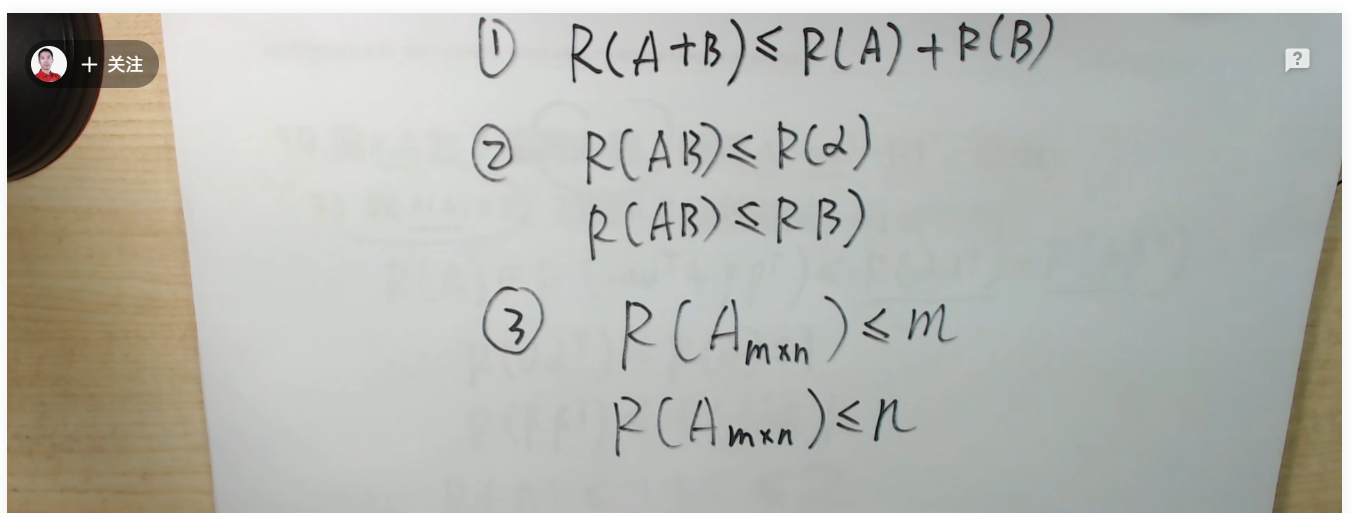 + 关注
① R(A+B)≤R(A)+R(B)
② R(AB)≤R(α)
R(AB)≤RB)
③ R(Aₘₓₙ)≤m
R(Aₘₓₙ)≤n